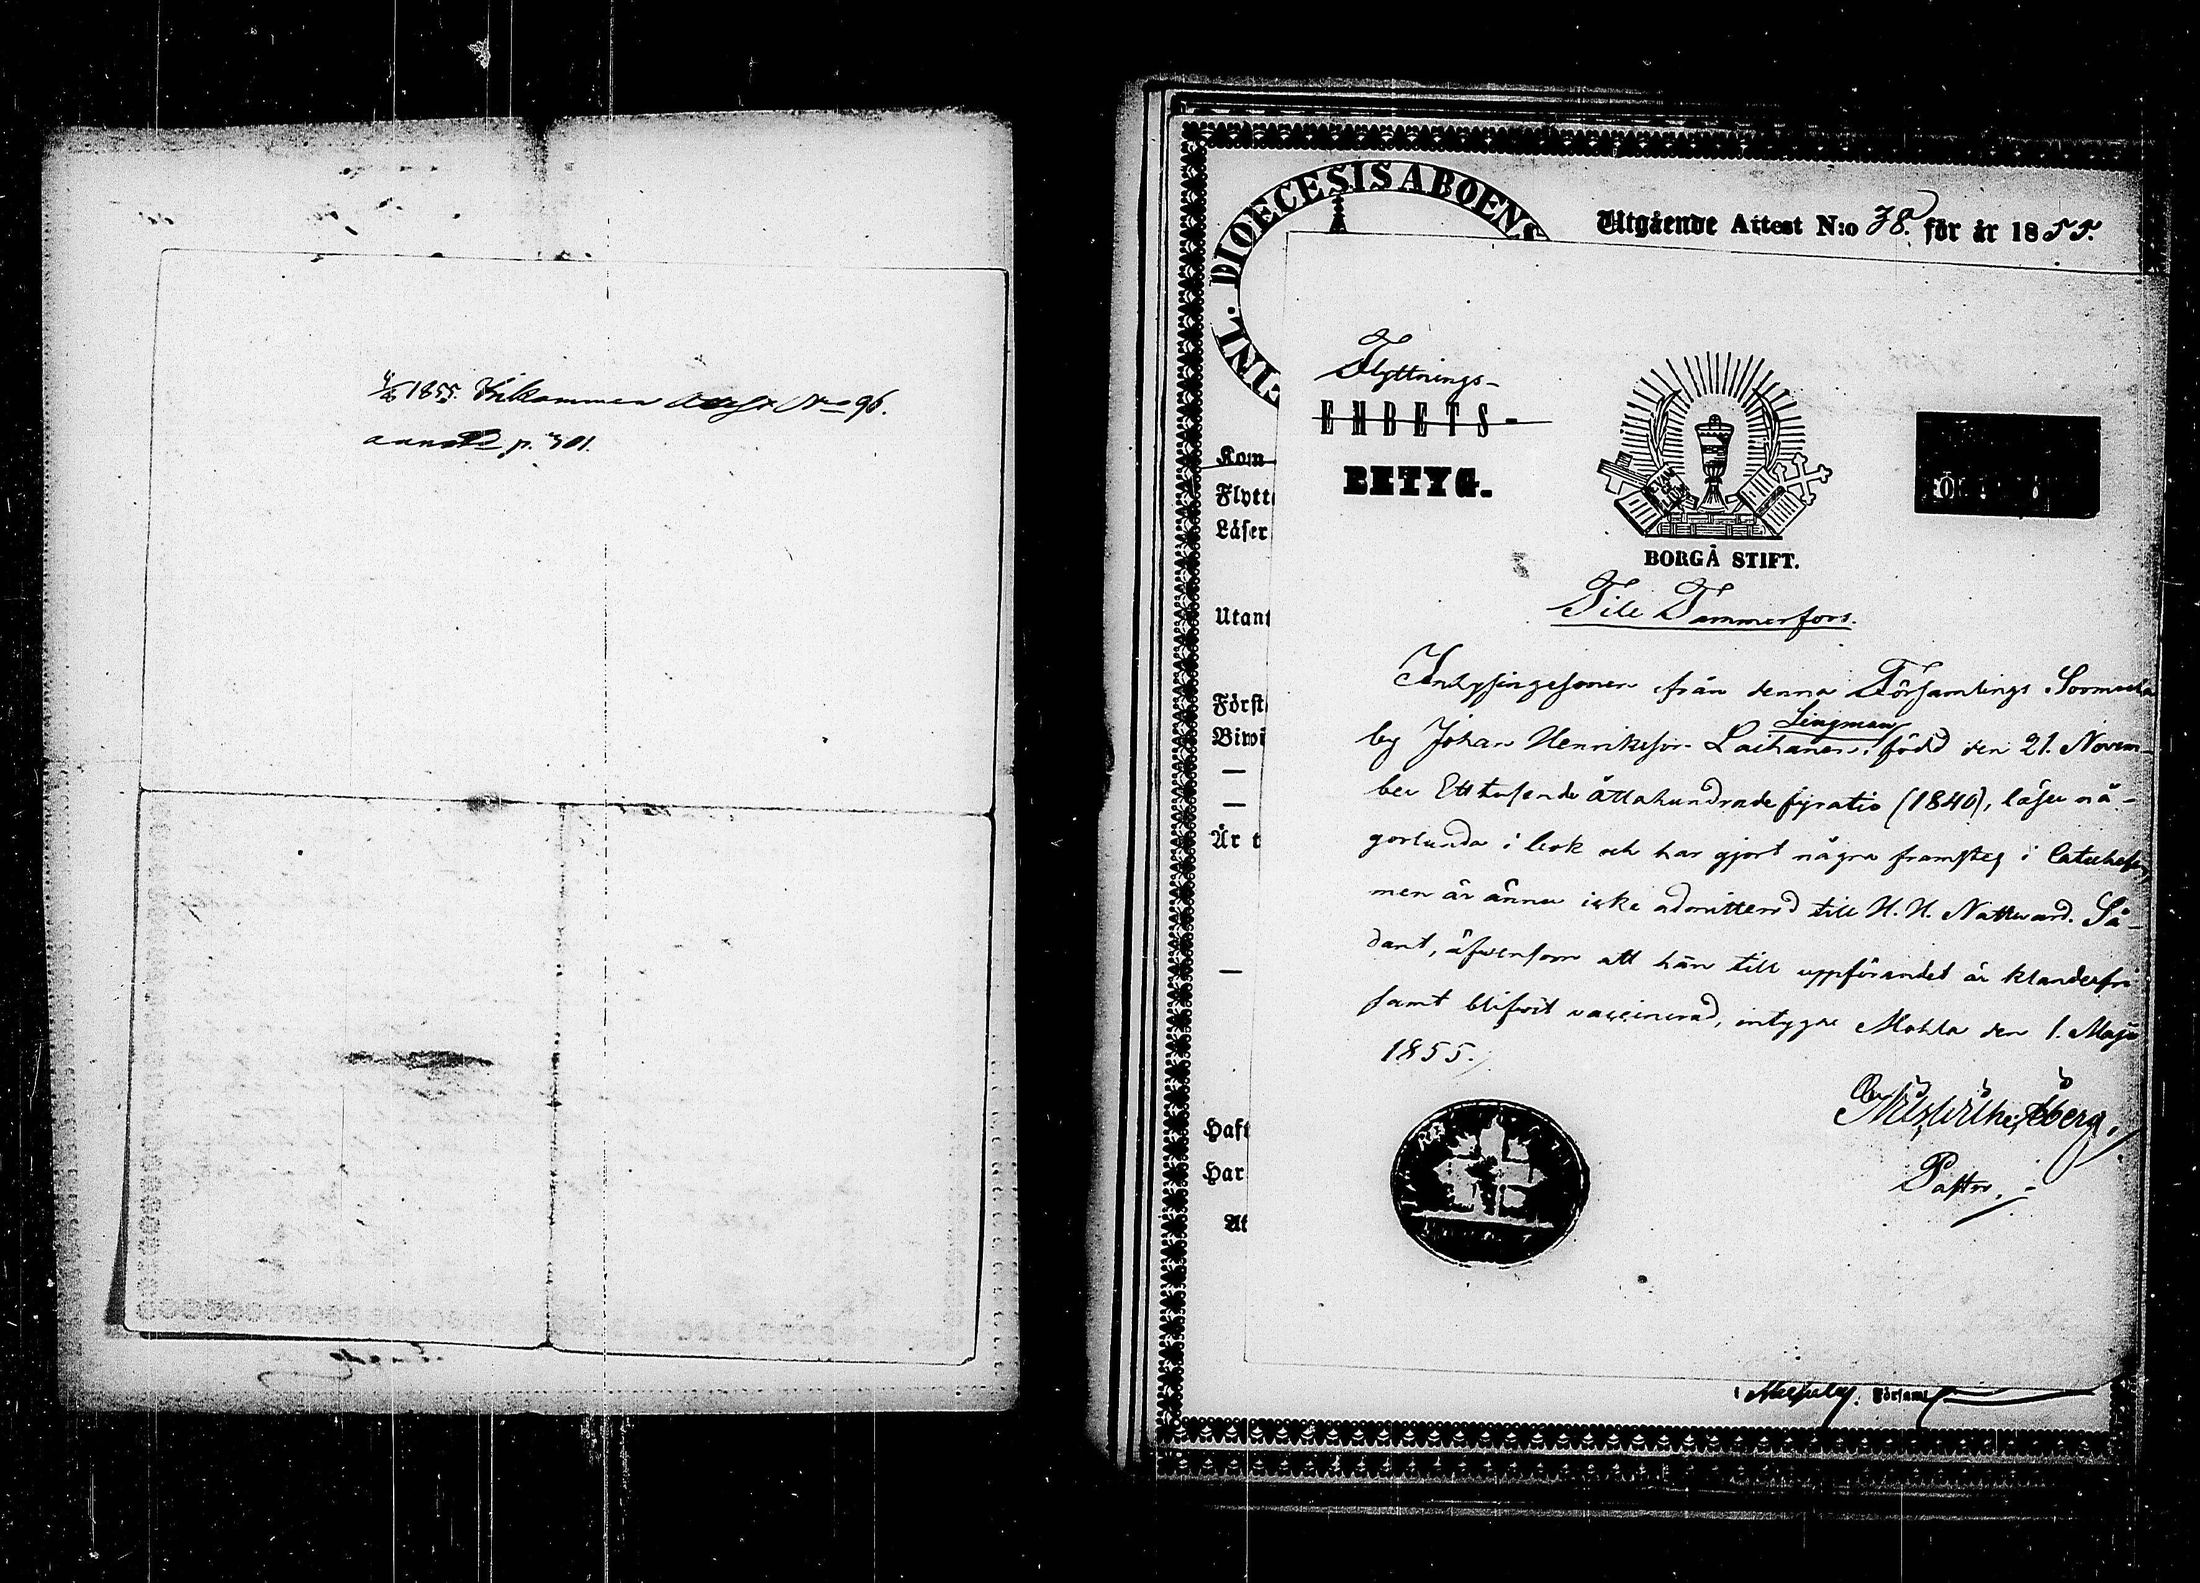 4/6 1855. Inkommen Attest No 96.
p. 301.
INL. DIOECESIS ABOENS
Utgående Attest N:o 38. för år 1855.
Flyttnings-
EHBETS-
BETYG.
BORGÅ STIFT.
Kom
Flytt
Läser
Utant
Först
Biwi
—
—
Är t
—
Haft
Har
At
Till Tammerfors.
Inhysingesonen från denna Församlings
Lingman
by Johan Henriksson Laihanen, född den 21. Novem-
ber Ett tusende åttahundrade fyratio (1840), läser nå-
gorlunda i bok och har gjort några framsteg i Catechesen,
men är ännu icke admitterad till H. H. Nattward. Så-
dant, äfvensom att han till uppförandet är klanderfri
samt blifvit vaccinerad, intygar Mohla den 1. Maji
1855.
Pastor.
i Församl